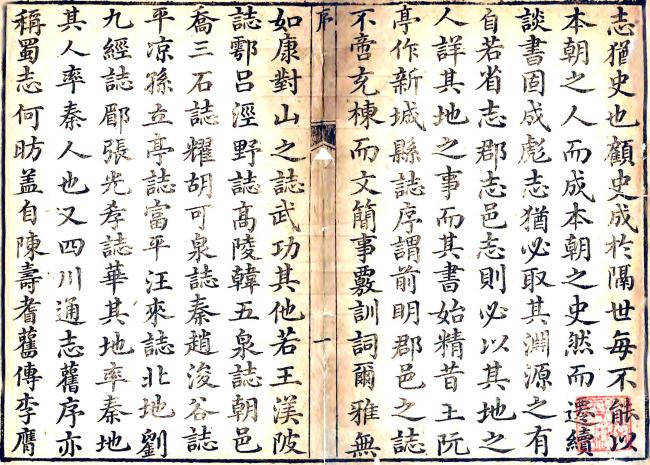 志猶史也顧史成於隔世每不能以
本朝之人而成本朝之史然而遷續
談書固成彪志猶必取其淵源之有
自若省志郡志邑志則必以其地之
人詳其地之事而其書始精昔王阮
亭作新城縣誌序謂前明郡邑之誌
不啻充棟而文簡事覈訓詞爾雅無
序
一
如康對山之誌武功其他若王渼陂
誌鄠呂涇野誌高陵韓五泉誌朝邑
喬三石誌耀胡可泉誌秦趙浚谷誌
平凉孫立亭誌富平汪來誌北地劉
九經誌郿張光孝誌華其地率秦地
其人率秦人也又四川通志舊序亦
稱蜀志何昉盖自陳壽耆舊傳李膺